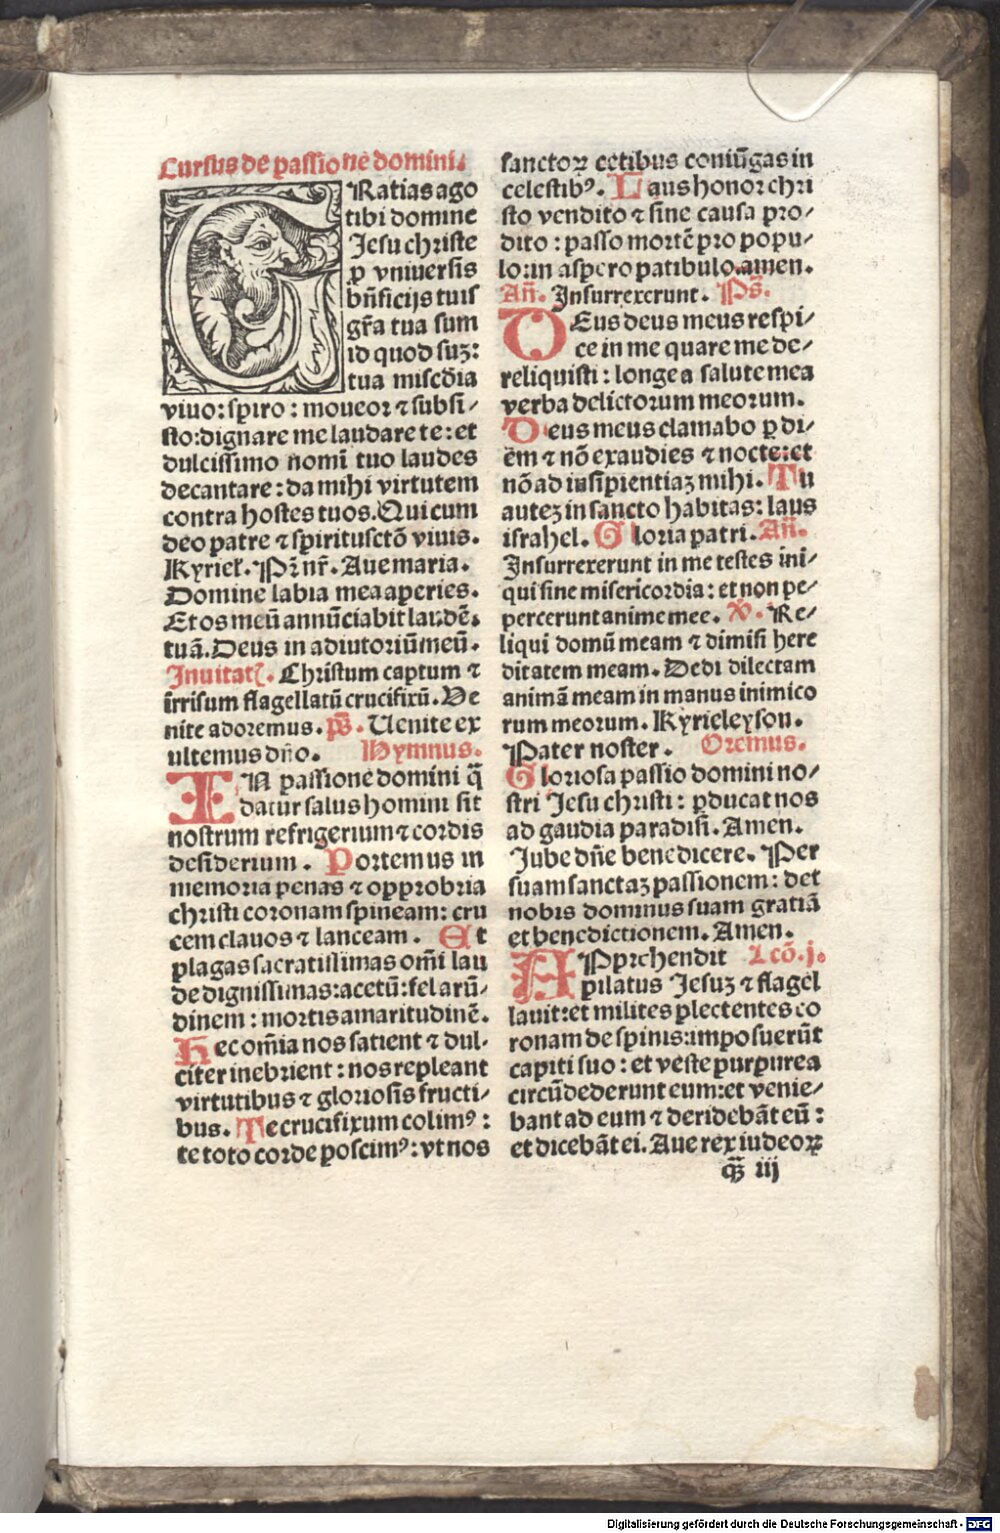 Cursus de passione domini.
GRatias ago
tibi domine
Jesu christe
ꝑ vniuersis
bn̄ficijs tuis
gr̄a tua sum
id quod suꝫ:
tua misc̄dia
viuo: spiro: moueor ⁊ subsi/
sto: dignare me laudare te: et
dulcissimo nomī tuo laudes
decantare: da mihi virtutem
contra hostes tuos. Qui cum
deo patre ⁊ spiritusctō viuis.
Kyriel̄. Pr̄ nr̄. Aue maria.
Domine labia mea aperies.
Et os meū annūciabit laudē.
tuā. Deus in adiutoriū meū.
Inuitatꝭ. Christum captum ⁊
irrisum flagellatū crucifixū. Ve
nite adoremus. ps̄. Uenite ex
ultemus dn̄o. Hymnus.
IN passione domini q̄
datur salus homini sit
nostrum refrigerium ⁊ cordis
desiderium. Portemus in
memoria penas ⁊ opprobria
christi coronam spineam: cru
cem clauos ⁊ lanceam. Et
plagas sacratissimas om̄i lau
de dignissimas: acetū: fel arū/
dinem: mortis amaritudinē.
Hec om̄ia nos satient ⁊ dul-
citer inebrient: nos repleant
virtutibus ⁊ gloriosis fructi/
bus. Te crucifixum colimꝰ:
te toto corde poscimꝰ: vt nos
sanctoꝝ cetibus coniūgas in
celestibꝰ. Laus honor chri
sto vendito ⁊ sine causa pro/
dito: passo mortē pro popu/
lo: in aspero patibulo. amen.
Añ. Insurrexerunt. Ps̄.
DEus deus meus respi/
ce in me quare me de/
reliquisti: longe a salute mea
verba delictorum meorum.
Deus meus clamabo ꝑ di/
em ⁊ nō exaudies ⁊ nocte: et
nō ad insipientiaꝫ mihi. Tu
auteꝫ in sancto habitas: laus
israhel. Gloria patri. Añ.
Insurrexerunt in me testes ini/
qui sine misericordia: et non pe/
percerunt anime mee. ℣. Re/
liqui domū meam ⁊ dimisi here
ditatem meam. Dedi dilectam
animā meam in manus inimico
rum meorum. Kyrieleyson.
Pater noster. Oremus.
Gloriosa passio domini no/
stri Jesu christi: ꝑducat nos
ad gaudia paradisi. Amen.
Jube dn̄e benedicere. Per
suam sanctaꝫ passionem: det
nobis dominus suam gratiā
et benedictionem. Amen.
APprehendit Lcō. j.
pilatus Jesuꝫ ⁊ flagel
lauit: et milites plectentes co
ronam de spinis: imposuerūt
capiti suo: et veste purpurea
circūdederunt eum: et venie/
bant ad eum ⁊ deridebāt eū:
et dicebāt ei. Aue rex iudeoꝝ
q̄ꝫ iij
Digitalisierung gefördert durch die Deutsche Forschungsgemeinschaft - DFG